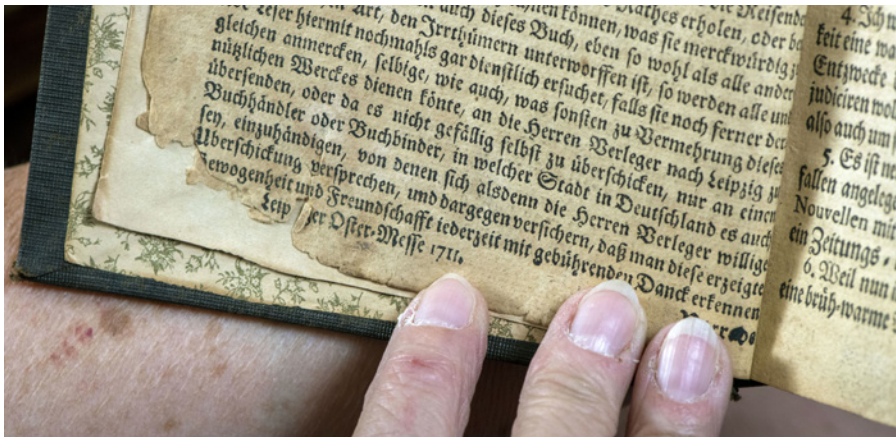 die Reisende
Rathes erholen, oder be
können, was sie merckwürdig
auch dieses Buch, eben so wohl als alle ander
Art, den Irrthümern unterworffen ist, so werden alle un
Leser hiermit nochmahls gar dienstlich ersuchet, falls sie noch ferner der
gleichen anmercken, selbige, wie auch, was sonsten zu Vermehrung dieses
nützlichen Werckes dienen könte, an die Herren Verleger nach Leipzig zu
übersenden, oder da es nicht gefällig selbst zu überschicken, nur an einen
Buchhändler oder Buchbinder, in welcher Stadt in Deutschland es auch
sey, einzuhändigen, von denen sich alsdenn die Herren Verleger willige
Uberschickung versprechen, und dargegen versichern, daß man diese erzeigte
ewogenheit und Freundschafft iederzeit mit gebührenden Danck erkennen
Leip er Oster-Messe 1711.
4. Ich
keit eine
Entzwecke
judiciren
also auch um
5. Es ist
fallen angeleg
Nouvellen mit
ein Zeitungs-
6. Weil nun
eine brüh-warme